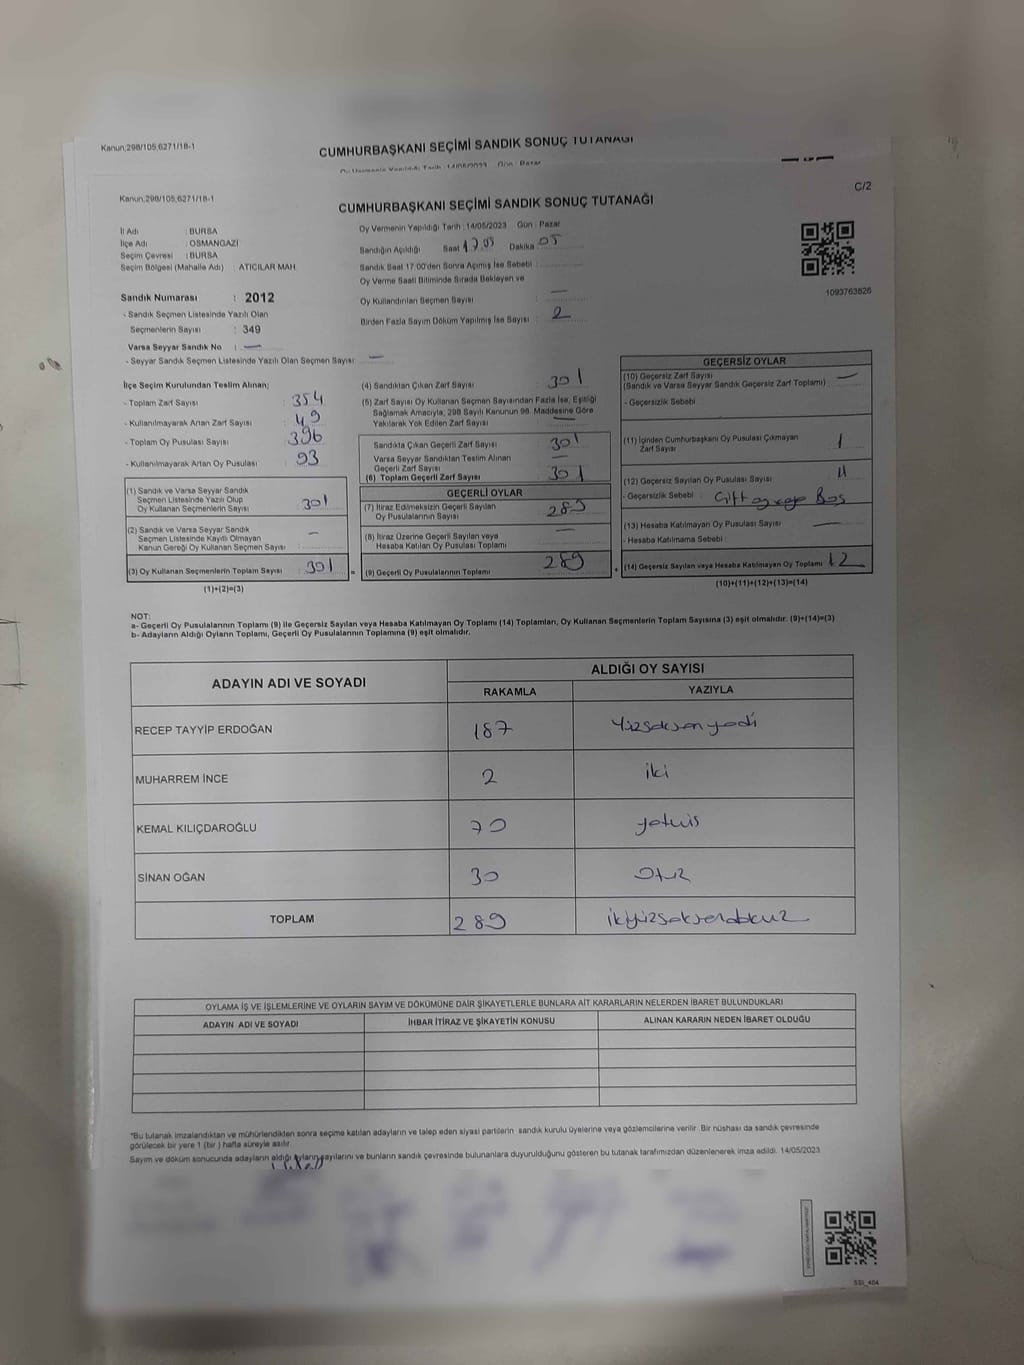 Kanun,298/105,6271/18-1
CUMHURBAŞKANI SEÇİMİ SANDIK SONUÇ TUTANAĞI
Kanun,298/105,6271/18-1
C/2
CUMHURBAŞKANI SEÇİMİ SANDIK SONUÇ TUTANAĞI
İl Adı : BURSA
İlçe Adı : OSMANGAZİ
Seçim Çevresi : BURSA
Seçim Bölgesi (Mahalle Adı) : ATICILAR MAH.
Oy Vermenin Yapıldığı Tarih :14/05/2023 Gün : Pazar
Sandığın Açıldığı Saat 17.05 Dakika 05
Sandık Saat 17:00'den Sonra Açılmış İse Sebebi :
Oy Verme Saati Bitiminde Sırada Bekleyen ve
Oy Kullandırılan Seçmen Sayısı : —
Birden Fazla Sayım Döküm Yapılmış İse Sayısı : 2
1093763826
Sandık Numarası : 2012
- Sandık Seçmen Listesinde Yazılı Olan
Seçmenlerin Sayısı : 349
Varsa Seyyar Sandık No : —
- Seyyar Sandık Seçmen Listesinde Yazılı Olan Seçmen Sayısı: —
İlçe Seçim Kurulundan Teslim Alınan;
- Toplam Zarf Sayısı : 354
- Kullanılmayarak Artan Zarf Sayısı : 49
- Toplam Oy Pusulası Sayısı : 396
- Kullanılmayarak Artan Oy Pusulası : 93
(1) Sandık ve Varsa Seyyar Sandık
Seçmen Listesinde Yazılı Olup
Oy Kullanan Seçmenlerin Sayısı : 301
(2) Sandık ve Varsa Seyyar Sandık
Seçmen Listesinde Kaydı Olmayan
Kanun Gereği Oy Kullanan Seçmen Sayısı : —
(3) Oy Kullanan Seçmenlerin Toplam Sayısı : 301
(1)+(2)=(3)
(4) Sandıktan Çıkan Zarf Sayısı : 301
(5) Zarf Sayısı Oy Kullanan Seçmen Sayısından Fazla İse, Eşitliği
Sağlamak Amacıyla, 298 Sayılı Kanunun 98. Maddesine Göre
Yakılarak Yok Edilen Zarf Sayısı : —
Sandıkta Çıkan Geçerli Zarf Sayısı : 301
Varsa Seyyar Sandıktan Teslim Alınan
Geçerli Zarf Sayısı : —
(6) Toplam Geçerli Zarf Sayısı : 301
GEÇERLİ OYLAR
(7) İtiraz Edilmeksizin Geçerli Sayılan
Oy Pusulalarının Sayısı : 289
(8) İtiraz Üzerine Geçerli Sayılan veya
Hesaba Katılan Oy Pusulası Toplamı : —
(9) Geçerli Oy Pusulalarının Toplamı : 289
GEÇERSİZ OYLAR
(10) Geçersiz Zarf Sayısı
(Sandık ve Varsa Seyyar Sandık Geçersiz Zarf Toplamı) : —
- Geçersizlik Sebebi :
(11) İçinden Cumhurbaşkanı Oy Pusulası Çıkmayan
Zarf Sayısı : 1
(12) Geçersiz Sayılan Oy Pusulası Sayısı : 11
- Geçersizlik Sebebi : Çift Boş
(13) Hesaba Katılmayan Oy Pusulası Sayısı : —
- Hesaba Katılmama Sebebi :
(14) Geçersiz Sayılan veya Hesaba Katılmayan Oy Toplamı : 12
(10)+(11)+(12)+(13)=(14)
NOT:
a- Geçerli Oy Pusulalarının Toplamı (9) ile Geçersiz Sayılan veya Hesaba Katılmayan Oy Toplamı (14) Toplamları, Oy Kullanan Seçmenlerin Toplam Sayısına (3) eşit olmalıdır. (9)+(14)=(3)
b- Adayların Aldığı Oyların Toplamı, Geçerli Oy Pusulalarının Toplamına (9) eşit olmalıdır.
ADAYIN ADI VE SOYADI
ALDIĞI OY SAYISI
RAKAMLA YAZIYLA
RECEP TAYYİP ERDOĞAN 187 Yüzseksenyedi
MUHARREM İNCE 2 iki
KEMAL KILIÇDAROĞLU 70 yetmiş
SİNAN OĞAN 30 Otuz
TOPLAM 289 ikiyüzseksendokuz
OYLAMA İŞ VE İŞLEMLERİNE VE OYLARIN SAYIM VE DÖKÜMÜNE DAİR ŞİKAYETLERLE BUNLARA AİT KARARLARIN NELERDEN İBARET BULUNDUKLARI
ADAYIN ADI VE SOYADI İHBAR İTİRAZ VE ŞİKAYETİN KONUSU ALINAN KARARIN NEDEN İBARET OLDUĞU
*Bu tutanak imzalandıktan ve mühürlendikten sonra seçime katılan adayların ve talep eden siyasi partilerin sandık kurulu üyelerine veya gözlemcilerine verilir. Bir nüshası da sandık çevresinde
görülecek bir yere 1 (bir ) hafta süreyle asılır.
Sayım ve döküm sonucunda adayların aldığı oyların sayılarını ve bunların sandık çevresinde bulunanlara duyurulduğunu gösteren bu tutanak tarafımızdan düzenlenerek imza edildi. 14/05/2023
SSI_404